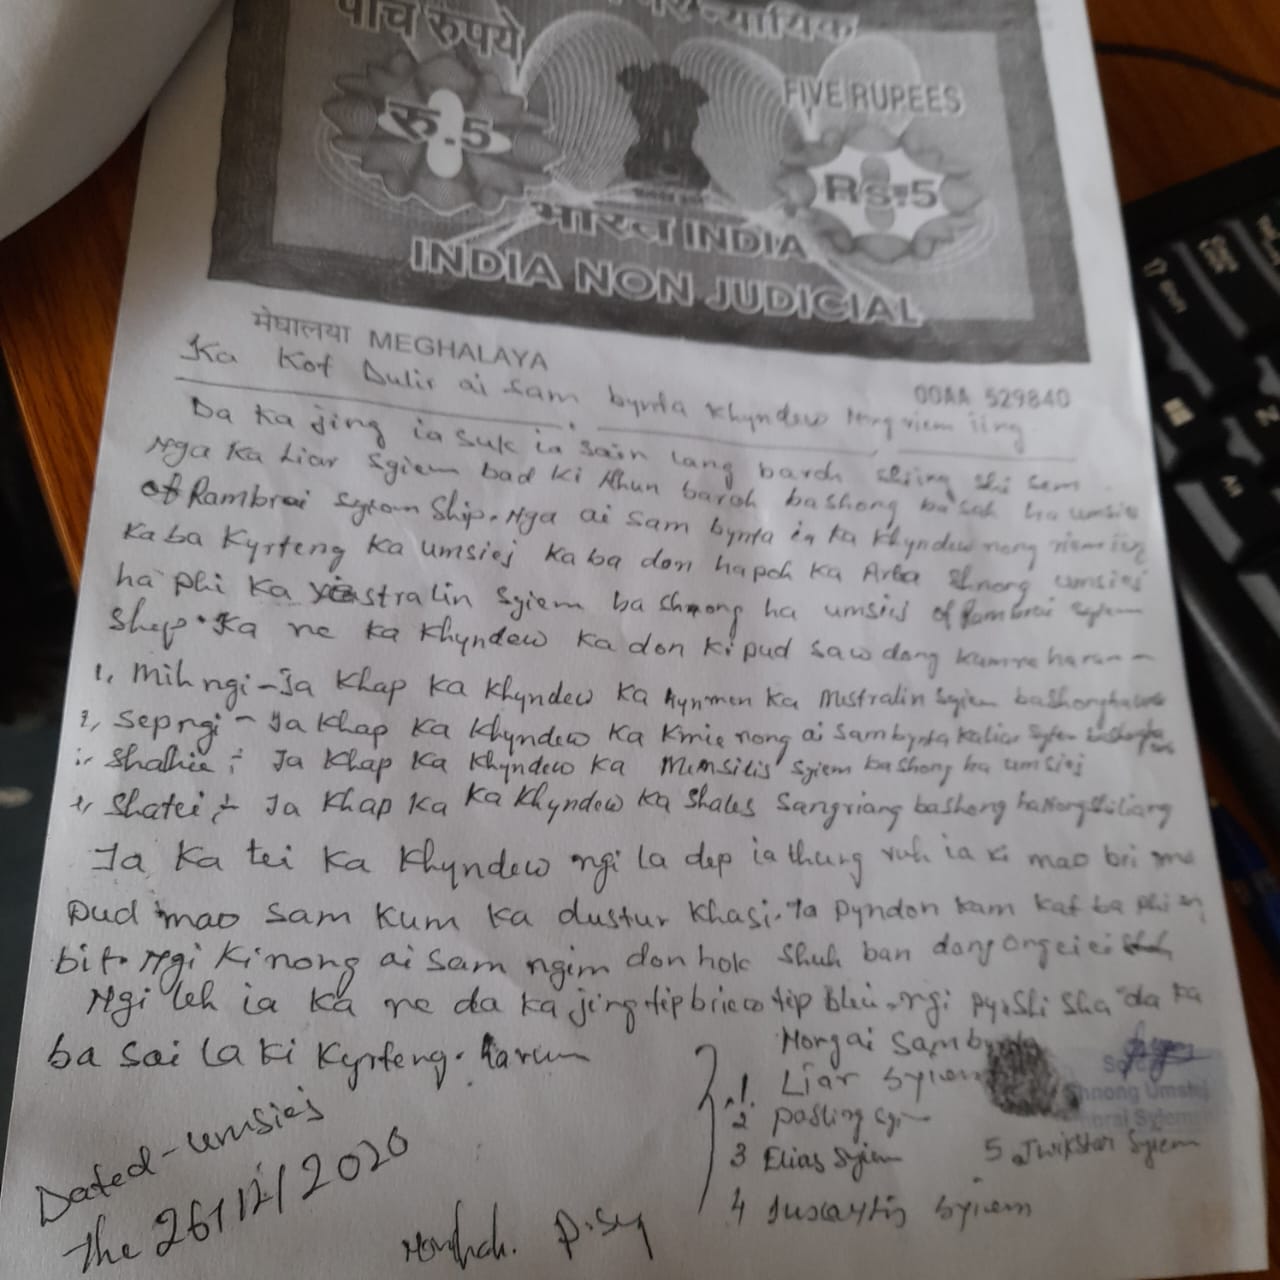 पाँच रुपये
न्यायिक
रु.5
FIVE RUPEES
Rs.5
भारत INDIA
INDIA NON JUDICIAL
मेघालया MEGHALAYA
00AA 529840
Ka Kot Dulir ai sam bynta khyndew nongriem iing
Da ka jing ia suk ia sain lang baroh shiing shi sem
Nga Ka Liar Syiem bad ki khun baroh bashong basah ha umsiej
of Rambrai Syiem Ship. Nga ai sam bynta ia ka khyndew nong riem iing
Kaba Kyrteng Ka umsiej kaba don hapoh ka Arba shnong umsiej
ha phi Ka stralin Syiem ba shnong ha umsiej of Rambrai Syiem
Ship. Ka ne ka khyndew ka don ki pud sawdong kumne harum
1, Mih ngi - Ia khap ka khyndew ka hynmen ka Mistralin Syiem bashong ha
2, Sepngi - Ia khap ka khyndew ka kmie nong ai sam bynta ka liar Syiem bashong
Shathie : Ia khap ka khyndew ka Syiem bashong ha umsiej
Shatei : Ia khap ka ka khyndew ka Shales Sangriang bashong ha Nongshiliang
Ia ka tei ka khyndew ngi la dep ia thung ruh ia ki mao bri mao
pud mao sam kum ka dustur khasi. Ia pyndon kam kat ba phi
bit. Ngi ki nong ai sam ngim don hok shuh ban dang ong eiei
Ngi leh ia ka ne da ka jing tip briew tip blei. ngi sha da ka
ba soi la ki kyrteng. harum
Nong ai sam bynta
1. Liar Syiem
2 Posling
3 Elias Syiem
4 Syiem
5 Jwikstar Syiem
Shnong Umsiej
Dated - umsiej
The 26/12/2020